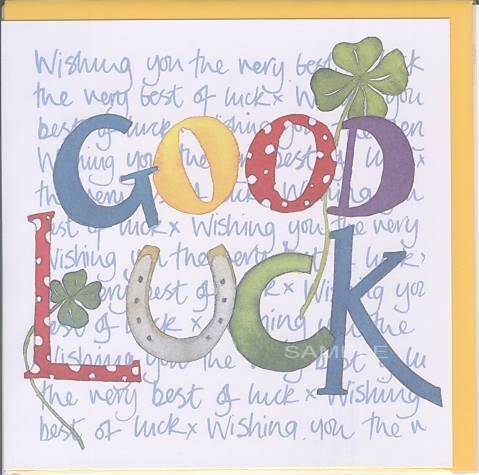 Wishing you the very best k
the very best of luck x W you
best of luck
GOOD
Wishing you best
the x Wishing you
best of luck x Wishing you the very
LUCK
Wishing you the very of luck
very best of x Wishing you
of luck x the
SAMPLE
Wishing you the very best lu
the very best of luck x Wishing
best of luck x Wishing you the